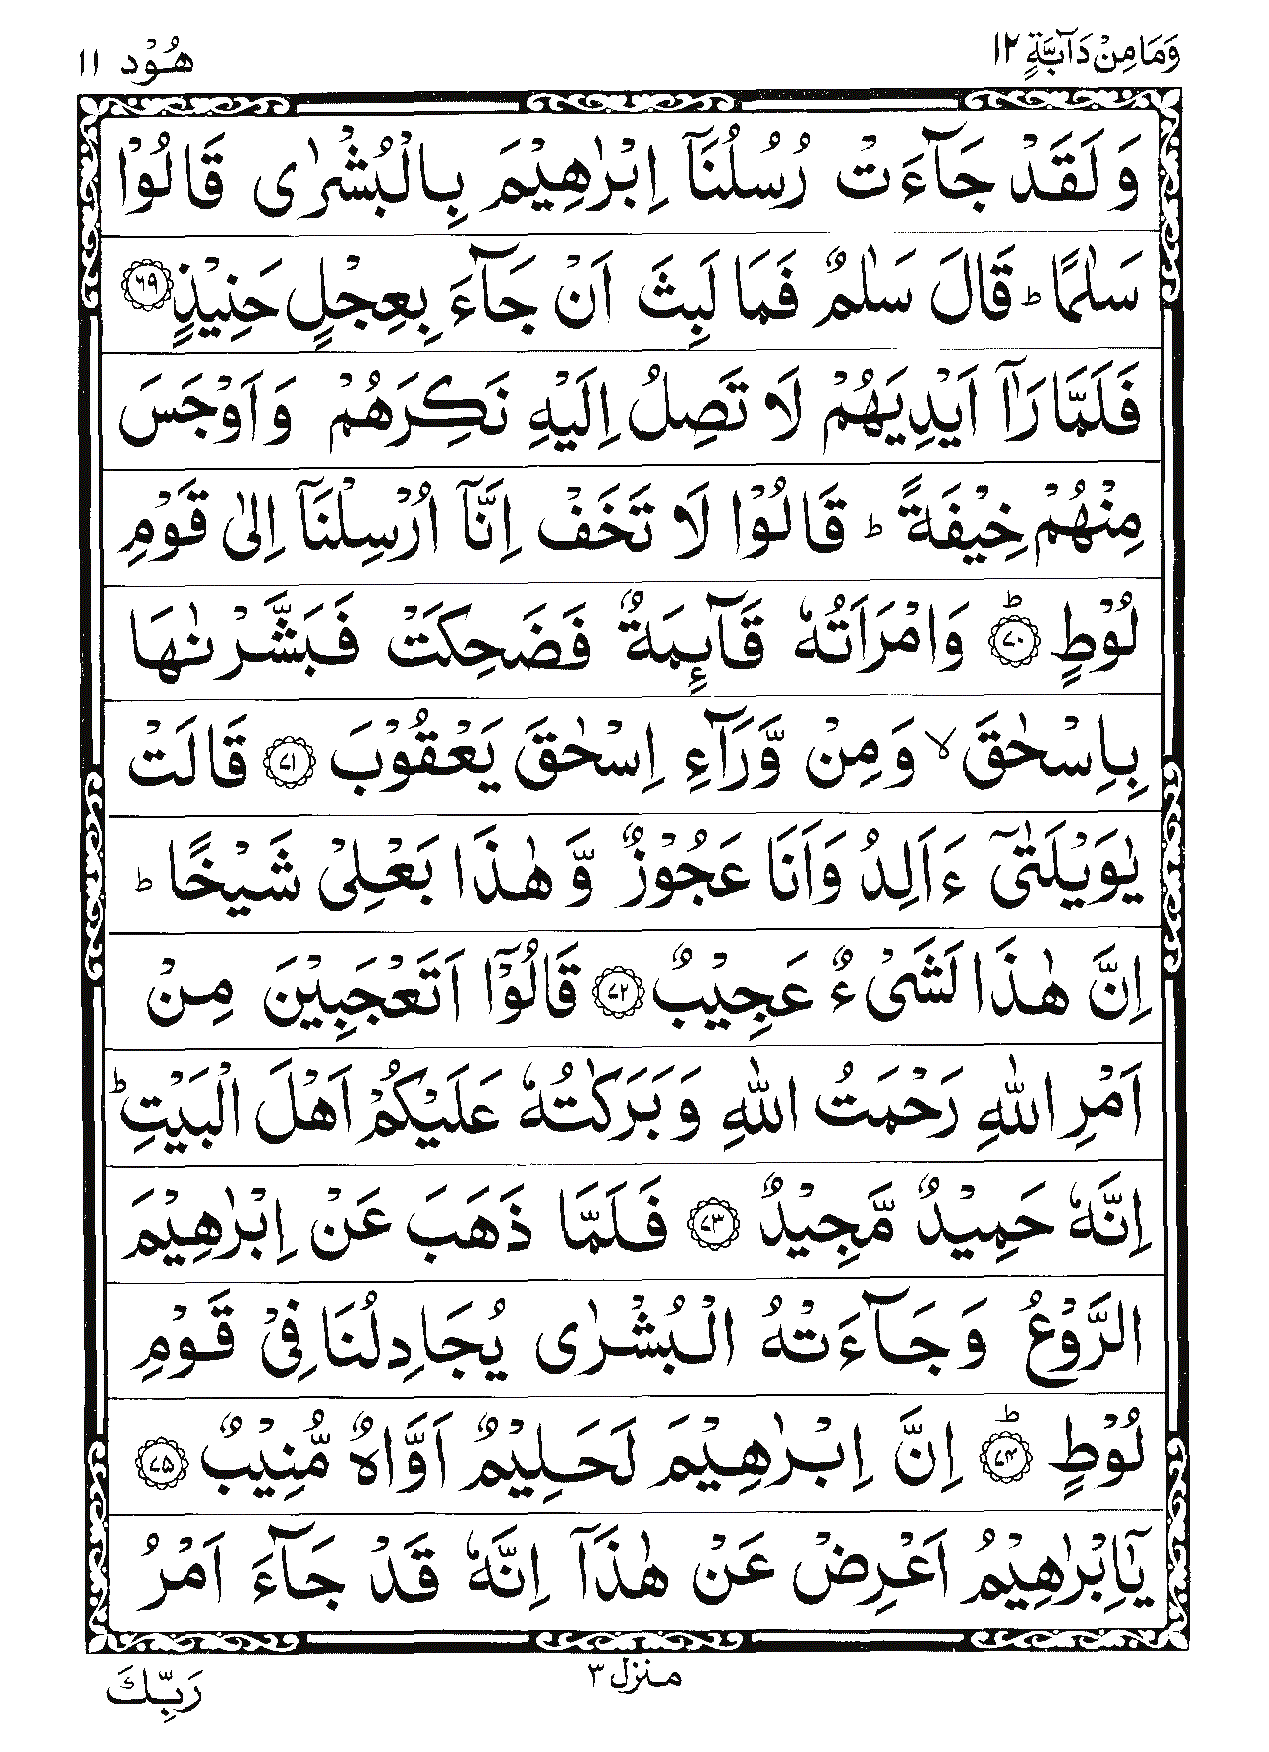 وَمَا مِنْ دَآبَّةٍ ١٢
هُوْد ١١
وَلَقَدْ جَآءَتْ رُسُلُنَآ اِبْرٰهِيْمَ بِالْبُشْرٰى قَالُوْا
سَلٰمًا ؕ قَالَ سَلٰمٌ فَمَا لَبِثَ اَنْ جَآءَ بِعِجْلٍ حَنِيْذٍ ﴿۶۹﴾
فَلَمَّا رَاٰۤ اَيْدِيَهُمْ لَا تَصِلُ اِلَيْهِ نَكِرَهُمْ وَاَوْجَسَ
مِنْهُمْ خِيْفَةً ؕ قَالُوْا لَا تَخَفْ اِنَّآ اُرْسِلْنَآ اِلٰى قَوْمِ
لُوْطٍ ؕ ﴿۷۰﴾ وَامْرَاَتُهٗ قَآئِمَةٌ فَضَحِكَتْ فَبَشَّرْنٰهَا
بِاِسْحٰقَ ۙ وَمِنْ وَّرَآءِ اِسْحٰقَ يَعْقُوْبَ ﴿۷۱﴾ قَالَتْ
يٰوَيْلَتٰٓى ءَاَلِدُ وَاَنَا عَجُوْزٌ وَّهٰذَا بَعْلِيْ شَيْخًا ؕ
اِنَّ هٰذَا لَشَيْءٌ عَجِيْبٌ ﴿۷۲﴾ قَالُوْٓا اَتَعْجَبِيْنَ مِنْ
اَمْرِ اللّٰهِ رَحْمَتُ اللّٰهِ وَبَرَكٰتُهٗ عَلَيْكُمْ اَهْلَ الْبَيْتِ ؕ
اِنَّهٗ حَمِيْدٌ مَّجِيْدٌ ﴿۷۳﴾ فَلَمَّا ذَهَبَ عَنْ اِبْرٰهِيْمَ
الرَّوْعُ وَجَآءَتْهُ الْبُشْرٰى يُجَادِلُنَا فِيْ قَوْمِ
لُوْطٍ ؕ ﴿۷۴﴾ اِنَّ اِبْرٰهِيْمَ لَحَلِيْمٌ اَوَّاهٌ مُّنِيْبٌ ﴿۷۵﴾
يٰٓاِبْرٰهِيْمُ اَعْرِضْ عَنْ هٰذَآ اِنَّهٗ قَدْ جَآءَ اَمْرُ
منزل ٣
رَبِّكَ